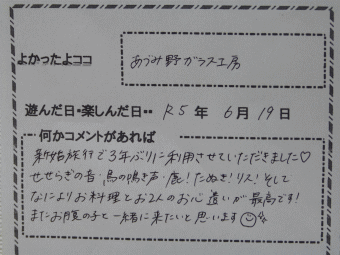 よかったよココ
あづみ野ガラス工房
遊んだ日・楽しんだ日・・ R5年 6月 19日
何かコメントがあれば
新婚旅行で3年ぶりに利用させていただきました♡
せせらぎの音・鳥の鳴き声・鹿!たぬき!リス!そして
なによりお料理とお2人のお心遣いが最高です!
またお腹の子と一緒に来たいと思います